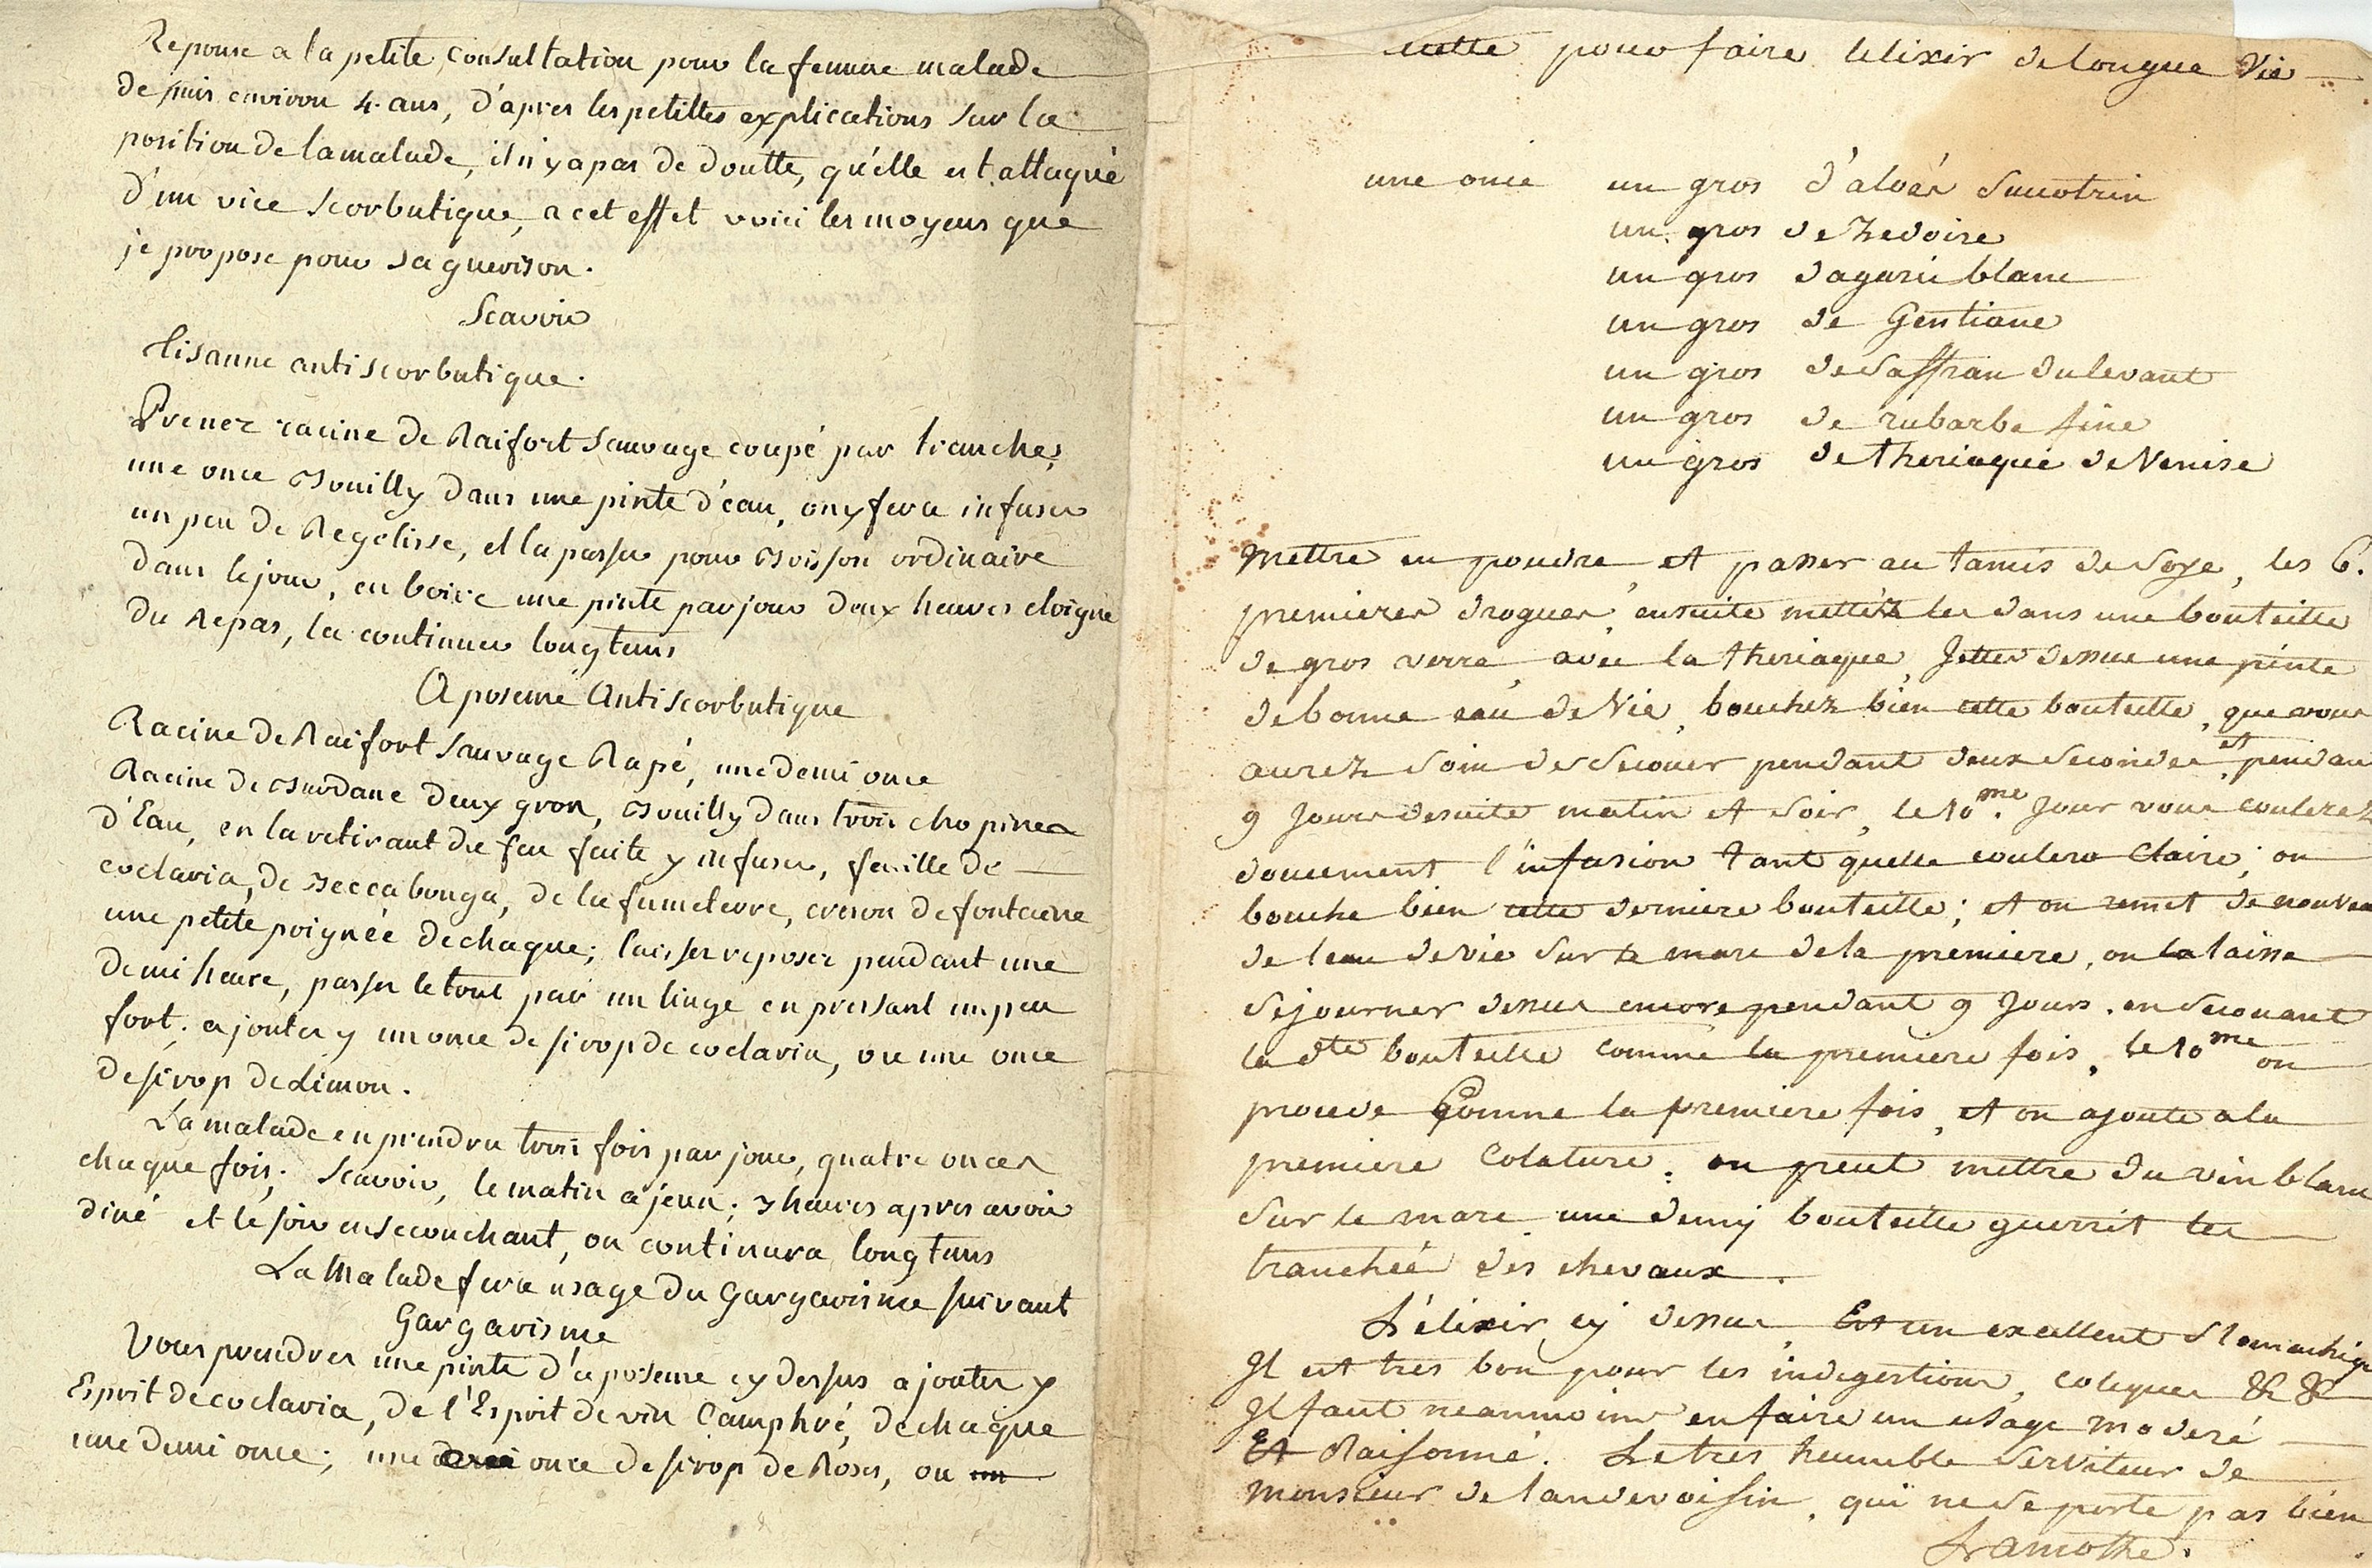 Reponse a la petite consultation pour la femme malade
depuis environ 4 ans, d'apres les petittes explications sur la
position de la malade, il n'y a pas de doutte, qu'elle est attaquée
d'un vice scorbutique, a cet effet voici les moyens que
je propose pour sa guerison.
Scavoir
tisanne antiscorbutique.
Prenez racine de Raifort sauvage coupé par tranches,
une once Bouilly dans une pinte d'eau, on y fera infuser
un peu de Regelisse, et la passer pour Boisson ordinaire
dans le jour, en boire une pinte par jour deux heures eloigné
du Repas, la continuer longtems
Aposeme Antiscorbutique
Racine de Raifort sauvage Rapé, une demi once
Racine de Burdane deux gros, Bouilly dans trois chopines
d'Eau, en la retirant du feu faite y infuser, feuille de
coclaria, de Beccabonga, de la fumeterre, creson de fontaine
une petite poignée de chaque; laisser reposer pendant une
demi heure, passer le tout par un linge en pressant un peu
fort; ajouter y un once de sirop de coclaria, ou une once
de sirop de Limon.
La malade en prendra trois fois par jour, quatre onces
chaque fois; Scavoir, le matin a jeun; 3 heures apres avoir
diné et le soir en se couchant, on continura longtems
La Malade fera usage du Gargarisme suivant
Gargarisme
Vous prendres une pinte d'aposeme cy dessus ajouter y
Esprit de coclaria, de l'Esprit de vin Camphré, de chaque
une demi once; une once de sirop de Roses, ou
cette pour faire lelixir de longue Vie
une once un gros d'aloés Succotrin
un gros de Zedoire
un gros dagaric blanc
un gros de Gentiane
un gros de Saffran du levant
un gros de rubarbe fine
un gros de theriaque de Venise
Mettre en poudre, et passer au tamis de Soye, les 6.
premieres drogues, ensuite mettéz les dans une bouteille
de gros verre, avec la theriaque, Jetter dessus une pinte
de bonne eau de Vie, bouchez bien cette bouteille, que vous
aurez soin de secouer pendant deux Secondes, et pendan
9 Jours desuite matin et soir, le 10.me Jour vous coulerez
doucement l'infusion tant quelle coulera Claire; on
bouche bien cette derniere bouteille; et on remet de nouveau
de leau de vie sur le marc de la premiere, on la laisse
sejourner dessus encore pendant 9 Jours. en secouant
la dte bouteille comme la premiere fois, le 10me on
procede Comme la premiere fois, et on ajoute a la
premiere Colature. on peut mettre du vin blanc
sur le marc une demy bouteille guerrit les
tranchéé des chevaux.
L'élixir cy dessus, Est un excellent Stomachique
Il est tres bon pour les indigestions, coliques &c &c
Il faut neanmoins en faire un usage moderé
Et Raisonné. Le tres humble Serviteur de
Monsieur de landevoisin, qui ne se porte pas bien
Lramothe.